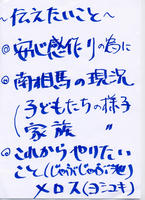 ～伝えたいこと～
◎安心感作りの為に
◎南相馬の現況
(子どもたちの様子
家族 〃
◎これからやりたい
こと(じゃぶじゃぶ池)
メロス(ヨシコキ)